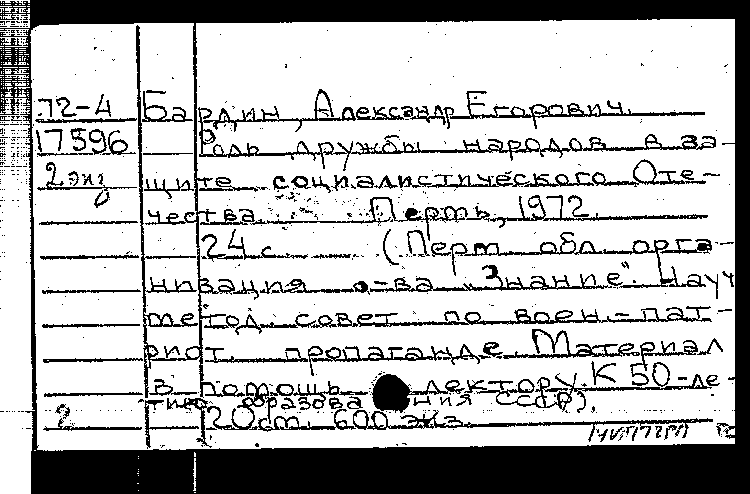 72-4 Бардин, Александр Егорович.
17596 Роль дружбы народов в за-
2 экз щите социалистического Оте-
чества. Пермь, 1972.
24 с. (Перм. обл. орга-
низация о-ва "Знание". Науч
метод. совет по воен.-пат-
риот. пропаганде. Материал
в помощь лектору. К 50-ле-
тию образования СССР).
2 20 см. 600 экз.